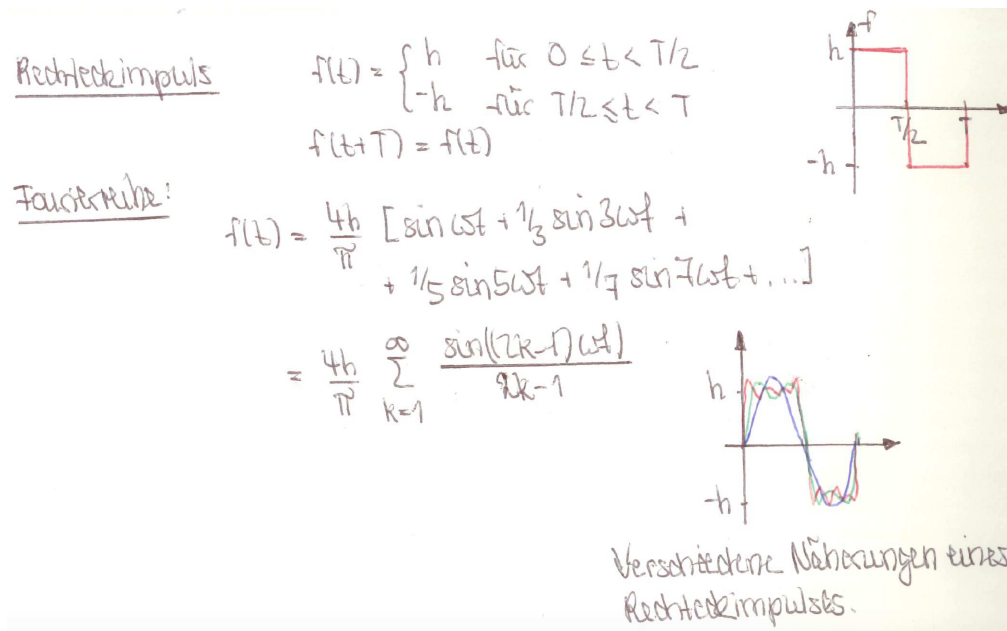 Rechteckimpuls
f(t) = { h für 0 ≤ t < T/2
-h für T/2 ≤ t < T
f(t+T) = f(t)
f
h
T/2
T
-h
Fourierreihe:
f(t) = 4h/π [sin ωt + 1/3 sin 3ωt +
+ 1/5 sin 5ωt + 1/7 sin 7ωt + ...]
= 4h/π ∞∑k=1 sin((2k-1)ωt)/2k-1
h
-h
Verschiedene Näherungen eines
Rechteckimpulses.